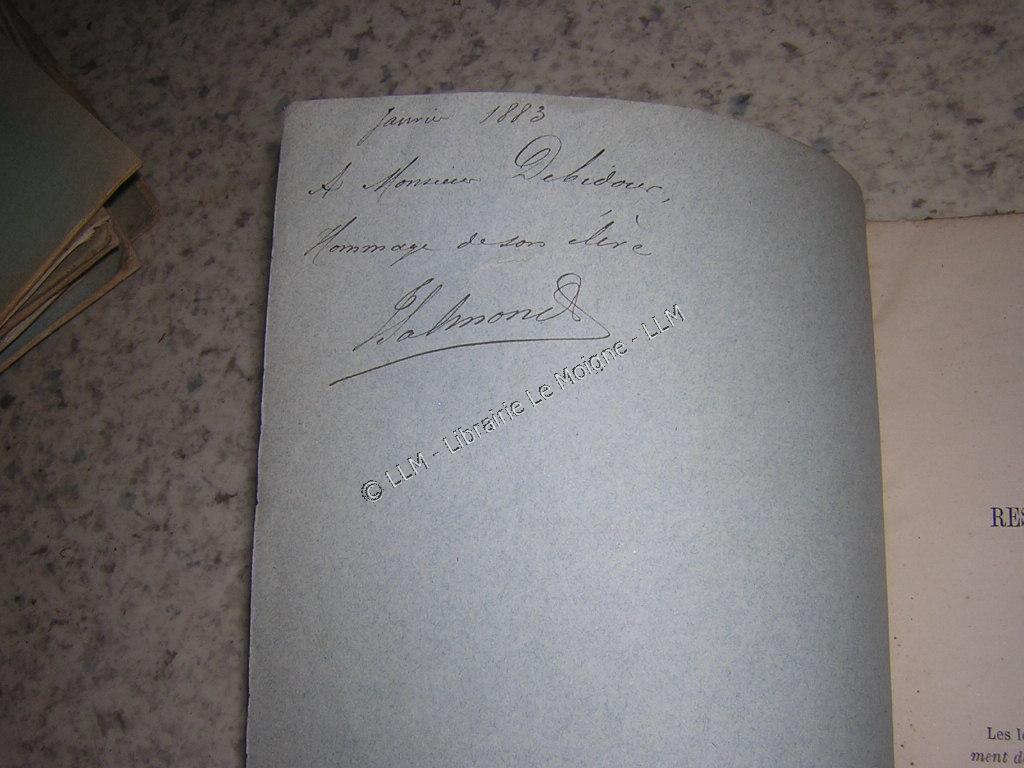 Janvier 1883
A Monsieur Debidour,
Hommage de son élève
© LLM - Librairie Le Moigne - LLM
RES
Les l
ment d